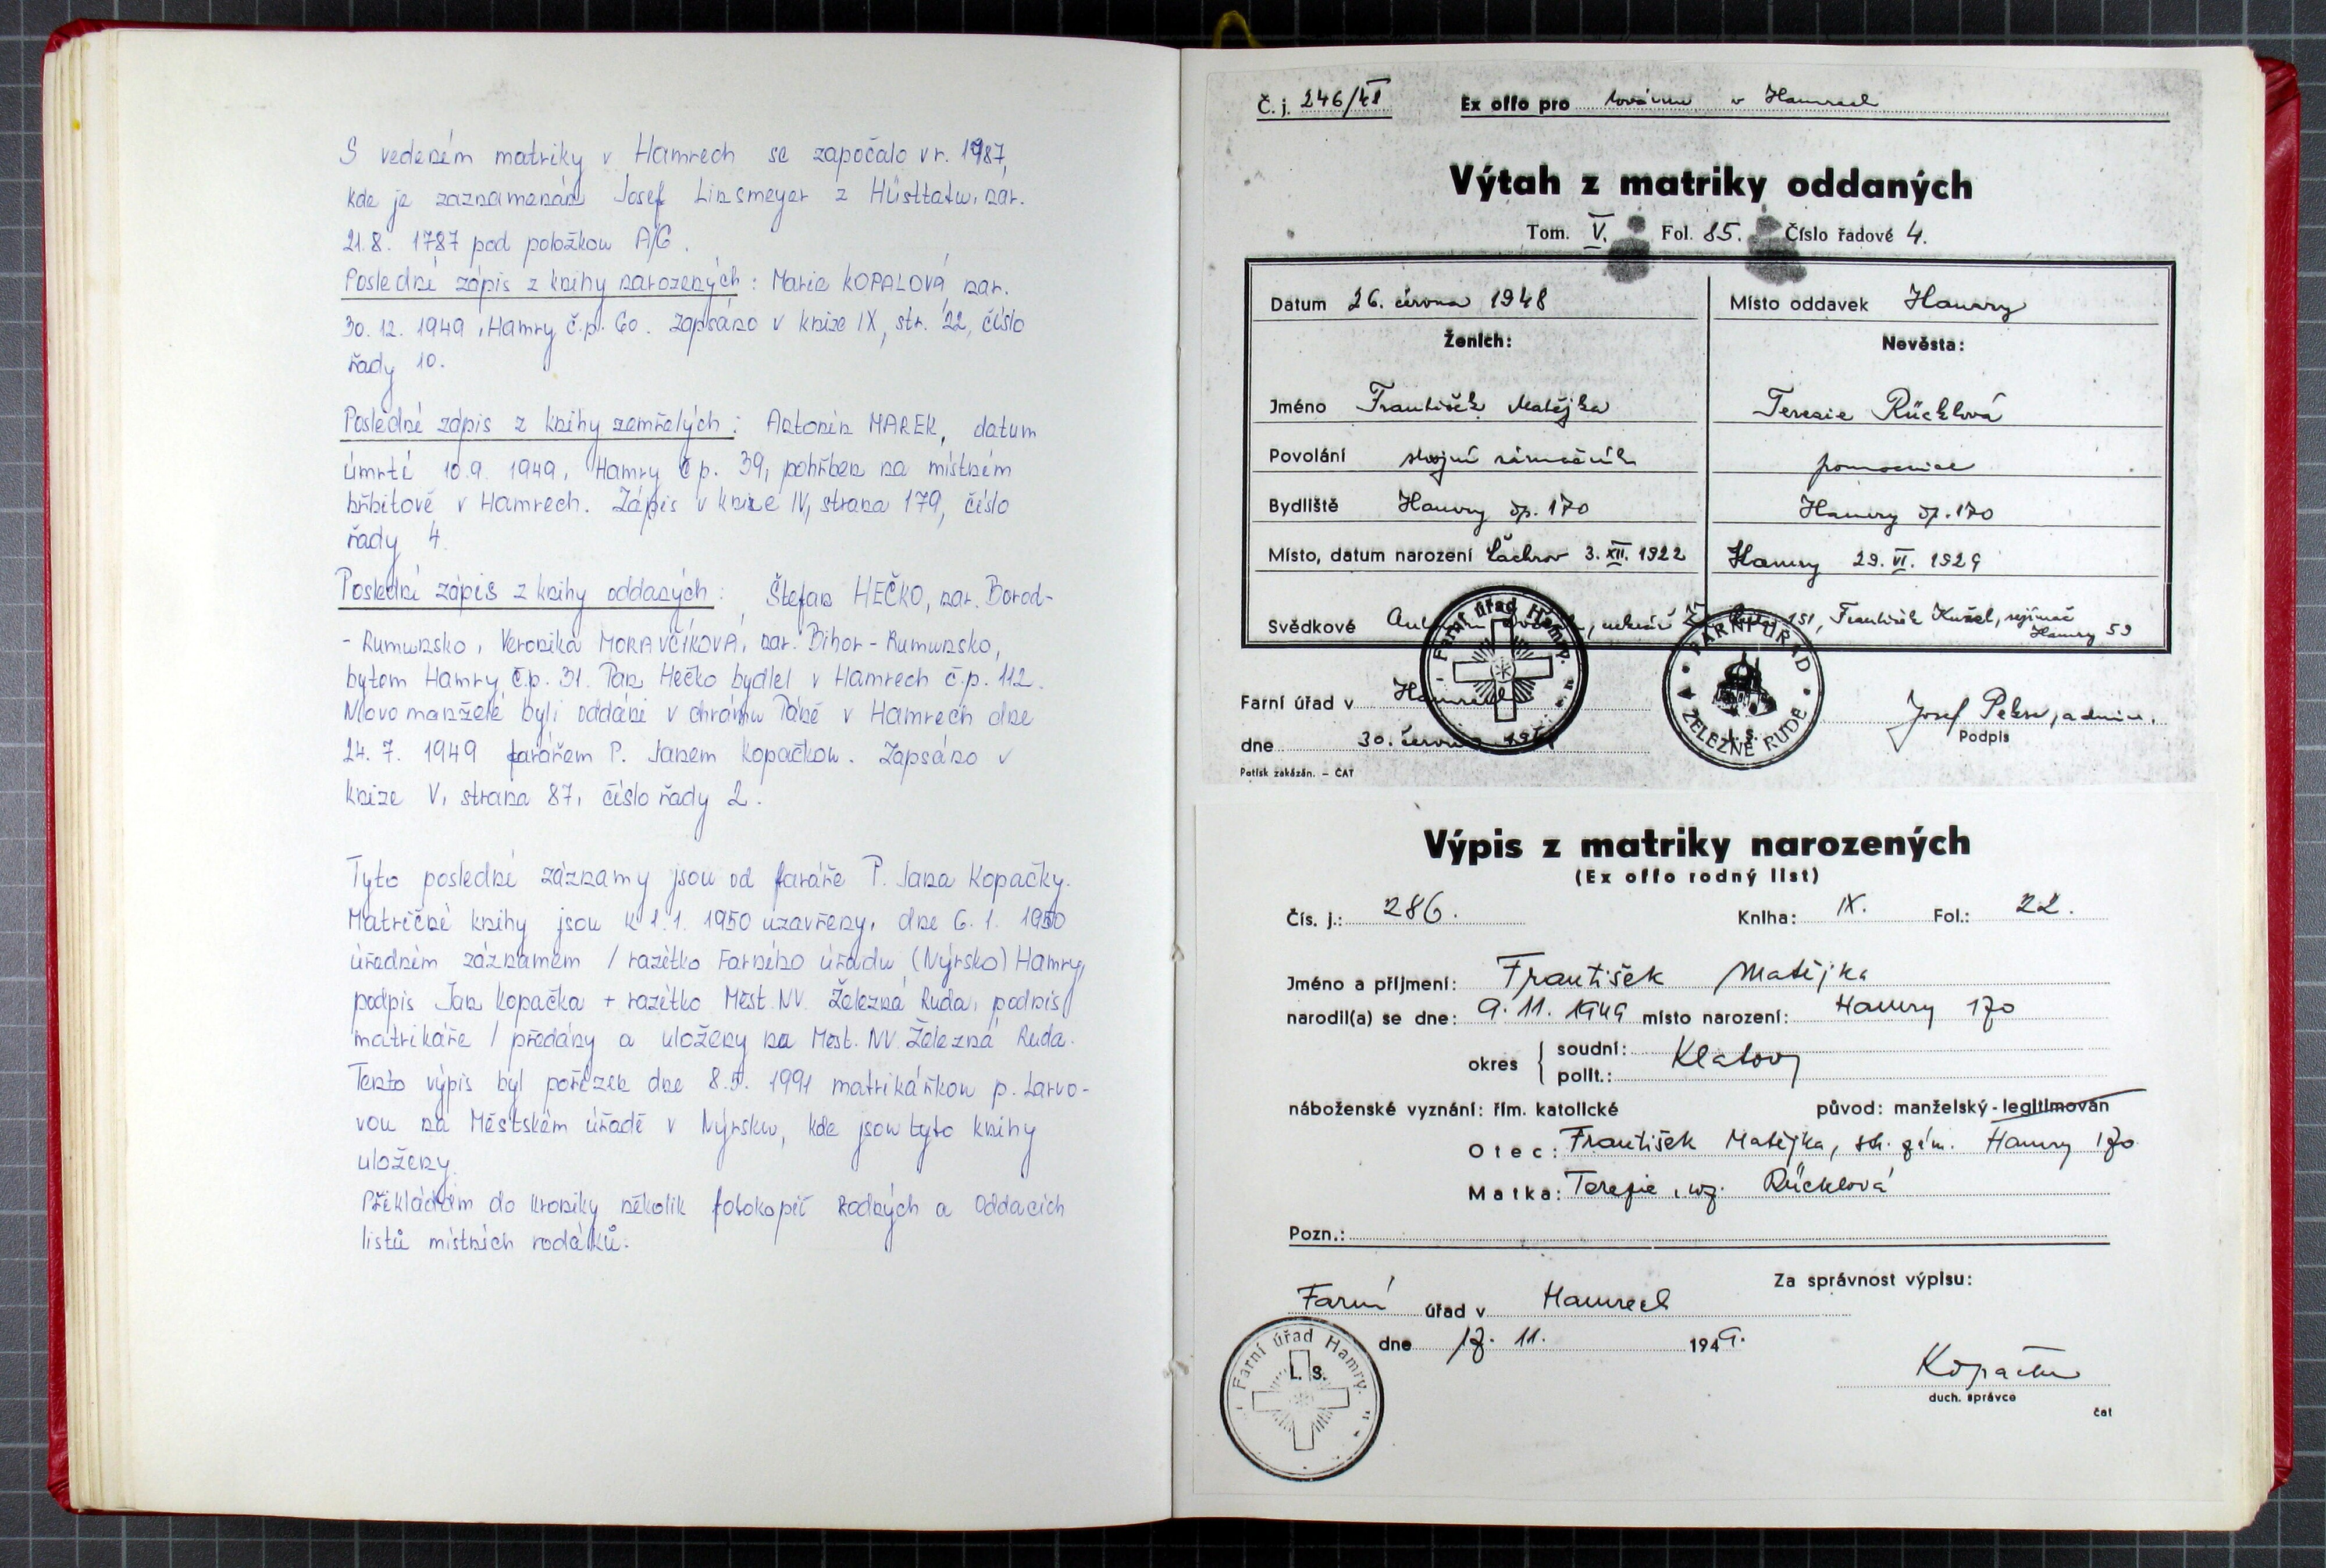 S vedením matriky v Hamrech se započalo v r. 1787,
kde je zaznamenán Josef Linsmeyer z Hüsttatu, nar.
21.8. 1787 pod položkou A/6.
Poslední zápis z knihy narozených: Marie KOPALOVÁ nar.
30. 12. 1949, Hamry č.p. 60. Zapsáno v knize IX, str. 22, číslo
řady 10.
Poslední zápis z knihy zemřelých: Antonín MAREK, datum
úmrtí 10.9. 1949, Hamry čp. 39, pohřben na místním
hřbitově v Hamrech. Zápis v knize IV, strana 179, číslo
řady 4.
Poslední zápis z knihy oddaných: Štefan HEČKO, nar. Borod-
- Rumunsko, Veronika MORAVČÍKOVÁ, nar. Bihor - Rumunsko,
bytem Hamry, č.p. 31. Pan Hečko bydlel v Hamrech č.p. 112.
Novomanželé byli oddáni v chrámu Páně v Hamrech dne
24. 7. 1949 farářem P. Janem Kopačkou. Zapsáno v
knize V, strana 87, číslo řady 2.
Tyto poslední záznamy jsou od faráře P. Jana Kopačky.
Matriční knihy jsou k 1.1. 1950 uzavřeny, dne 6. 1. 1950
úředním záznamem / razítko Farního úřadu (Nýrsko) Hamry,
podpis Jan Kopačka + razítko Měst. NV. Železná Ruda, podpis
matrikáře / předány a uloženy na Měst. NV. Železná Ruda.
Tento výpis byl pořízen dne 8.5. 1991 matrikářkou p. Larvo-
vou na Městském úřadě v Nýrsku, kde jsou tyto knihy
uloženy.
Překládám do kroniky několik fotokopií Rodných a Oddacích
listů místních rodáků.
Č. j. 246/48 Ex offo pro v Hamrech
Výtah z matriky oddaných
Tom. V. Fol. 85. Číslo řadové 4.
Datum 26. června 1948 Místo oddavek Hamry
Ženich: Nevěsta:
Jméno František Matějka Terezie Rücklová
Povolání strojní zámečník pomocnice
Bydliště Hamry čp. 170 Hamry čp. 170
Místo, datum narození Čachrov 3. XII. 1922 Hamry 29. VI. 1929
Svědkové 151, František Kužel, Hamry 59
Farní úřad v Hamrech
dne 30. června
Josef
Podpis
Potisk zakázán. – ČAT
Farní úřad Hamry.
FARNÍ ÚŘAD
L. S.
ŽELEZNÉ RUDĚ
Výpis z matriky narozených
(Ex offo rodný list)
Čís. j.: 286. Kniha: IX. Fol.: 22.
Jméno a příjmení: František Matějka
narodil(a) se dne: 9. 11. 1949 místo narození: Hamry 170
okres { soudní: Klatovy
polit.:
náboženské vyznání: řím. katolické původ: manželský - legitimován
Otec: František Matějka, Hamry 170
Matka: Terezie, roz. Rücklová
Pozn.:
Za správnost výpisu:
Farní úřad v Hamrech
dne 17. 11. 1949.
Kopačka
duch. správce
čat
Farní úřad Hamry.
L. S.